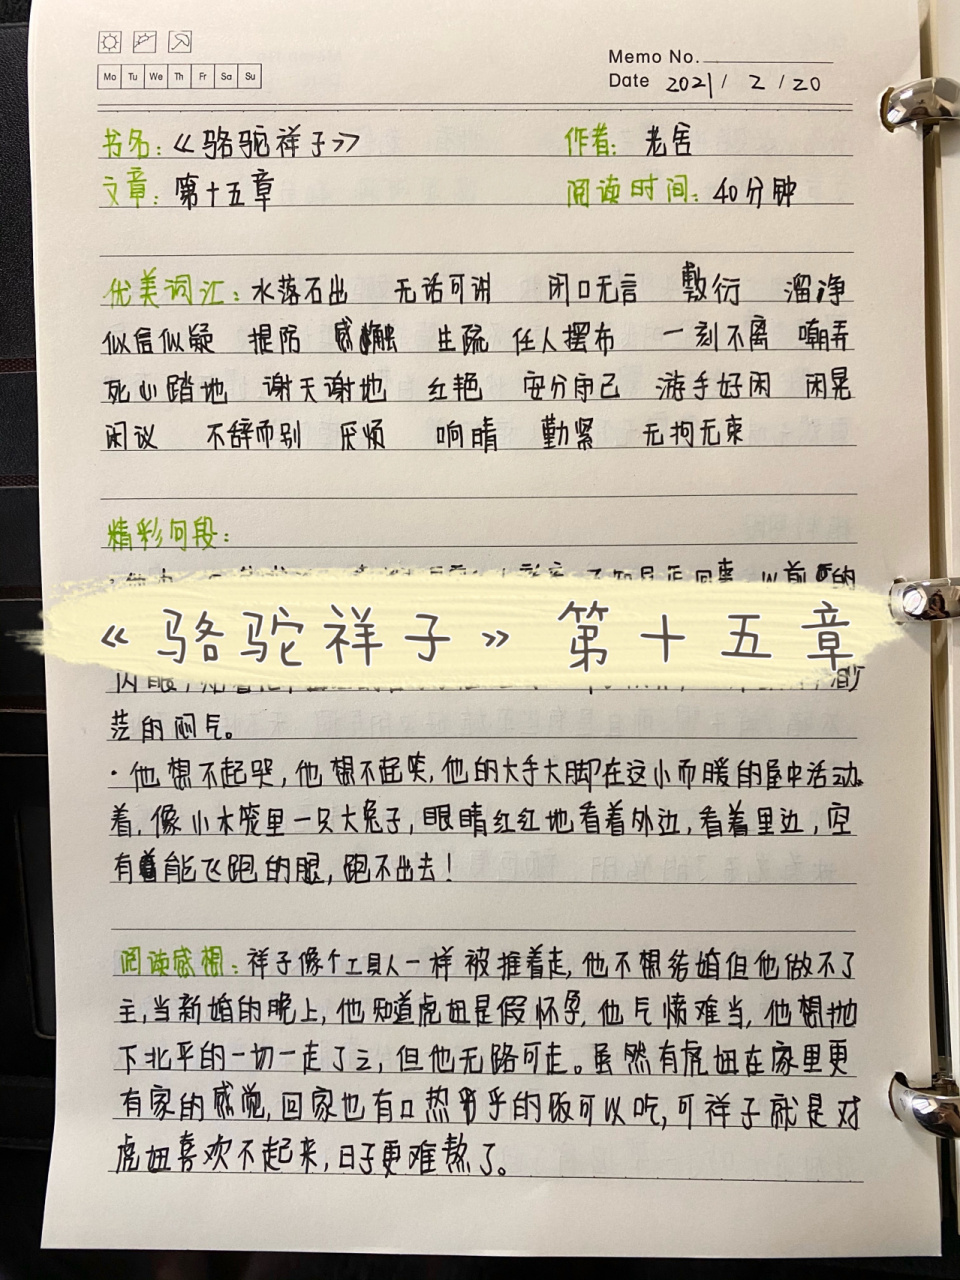 Mo Tu We Th Fr Sa Su
Memo No.
Date 2021 / 2 / 20
书名:《骆驼祥子》 作者: 老舍
文章: 第十五章 阅读时间: 40分钟
优美词汇: 水落石出 无话可讲 闭口无言 敷衍 溜净
似信似疑 提防 感触 生疏 任人摆布 一刻不离 嘲弄
死心踏地 谢天谢地 红艳 安分守己 游手好闲 闲晃
闲议 不辞而别 厌烦 响晴 勤紧 无拘无束
精彩句段:
以前的
《骆驼祥子》第十五章
茫的闷气。
·他想不起哭,他想不起笑,他的大手大脚在这小而暖的屋中活动
着,像小木笼里一只大兔子,眼睛红红地看着外边,看着里边,空
有着能飞跑的腿,跑不出去!
阅读感想: 祥子像个工具人一样被推着走,他不想结婚但他做不了
主,当新婚的晚上,他知道虎妞是假怀孕,他气愤难当,他想抛
下北平的一切一走了之,但他无路可走。虽然有虎妞在家里更
有家的感觉,回家也有口热乎乎的饭可以吃,可祥子就是对
虎妞喜欢不起来,日子更难熬了。